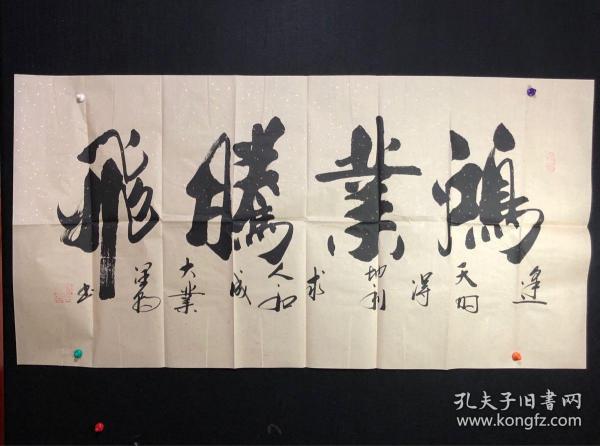 鴻業騰飛
逢
天时
得
地利
求
人和
成
大業
書
孔夫子旧書网
www.kongfz.com